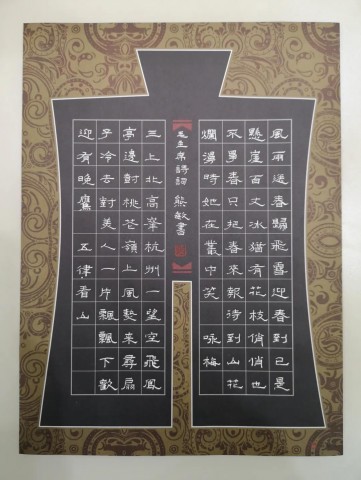 風雨送春歸飛雪迎春到已是
懸崖百丈冰猶有花枝俏俏也
不爭春只把春來報待到山花
爛漫時她在叢中笑 咏梅
毛主席詩詞 熊敏書
三上北高峯杭州一望空飛鳳
亭邊樹桃花嶺上風熱來尋扇
子冷去對美人一片飄飄下歡
迎有晚鷹 五律看山